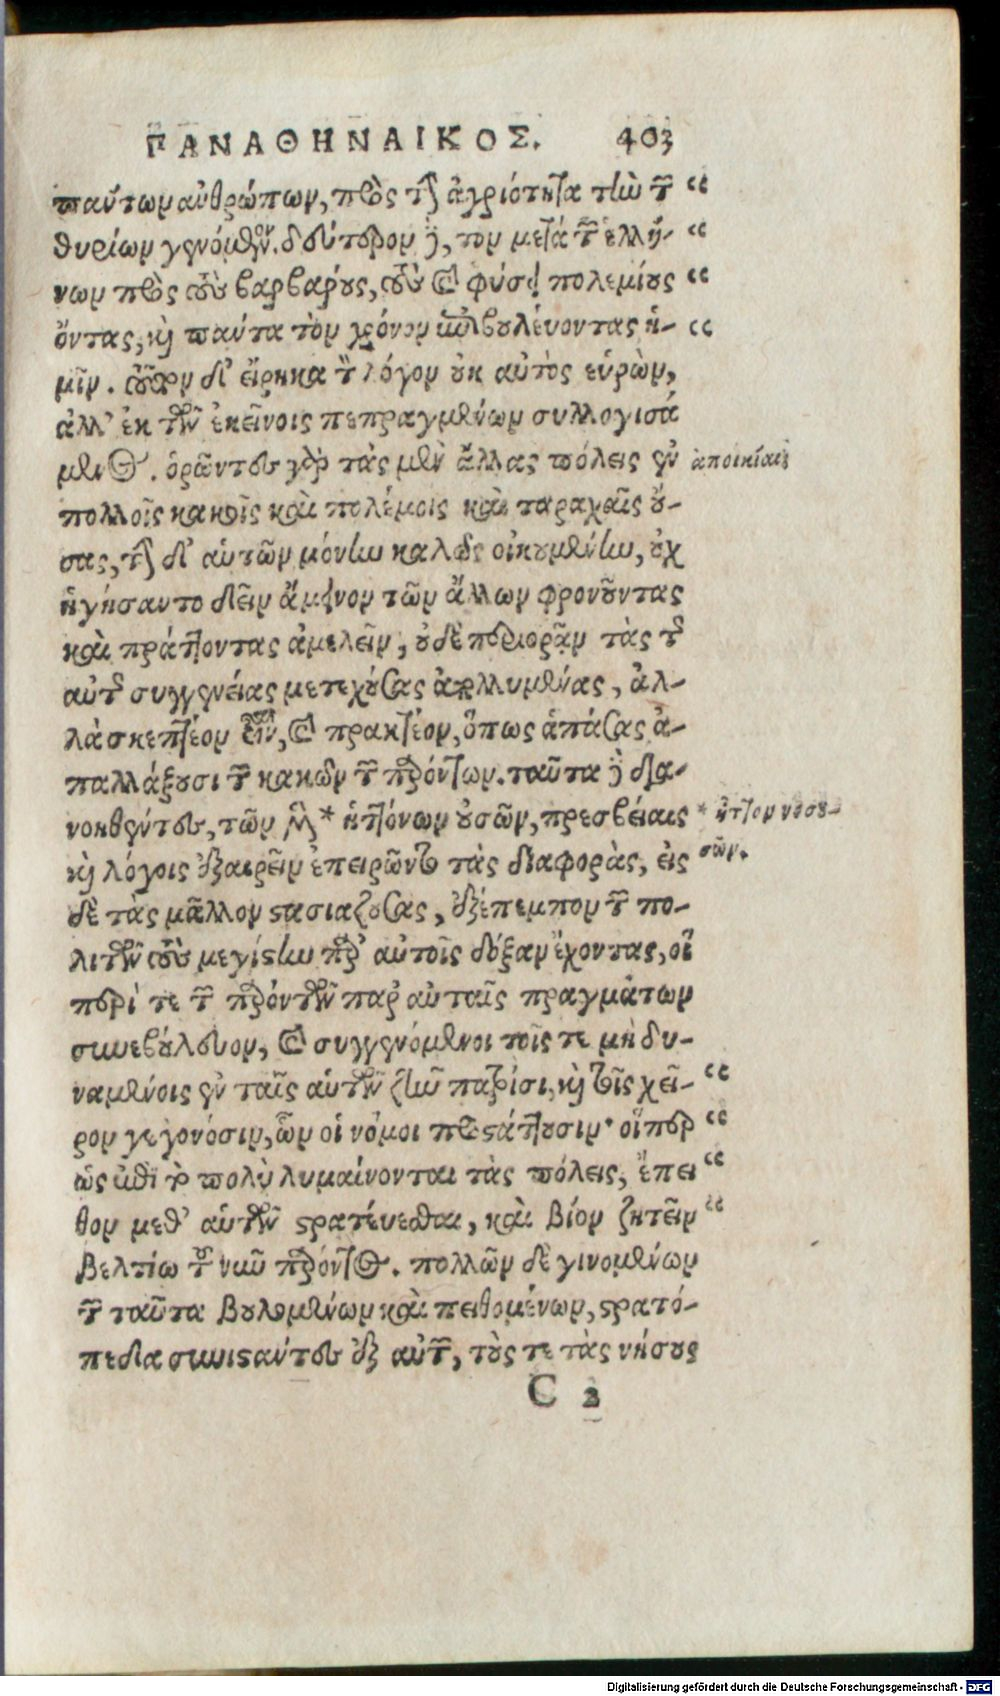 ΠΑΝΑΘΗΝΑΙΚΟΣ. 403
πάντων ἀνθρώπων, πρὸς τὴν ἀγριότητα τὴν τῶν “
θηρίων γενόμενον. δεύτερον δὲ, τὸν μετὰ τῶν ἑλλή- “
νων πρὸς τοὺς βαρβάρους, τοὺς καὶ φύσει πολεμίους “
ὄντας, καὶ πάντα τὸν χρόνον ἐπιβουλεύοντας ἡ- “
μῖν. τοῦτον δ' εἴρηκα τὸν λόγον οὐκ αὐτὸς εὑρὼν,
ἀλλ' ἐκ τῶν ἐκείνοις πεπραγμένων συλλογισά
μενος. ὁρῶντες γὰρ τὰς μὲν ἄλλας πόλεις ἐν ἀποικίαις
πολλοῖς κακοῖς καὶ πολέμοις καὶ ταραχαῖς οὔ-
σας, τὴν δ' αὑτῶν μόνην καλῶς οἰκουμένην, οὐχ
ἡγήσαντο δεῖν ἄμεινον τῶν ἄλλων φρονοῦντας
καὶ πράττοντας ἀμελεῖν, οὐδὲ περιορᾷν τὰς τῆς
αὐτῆς συγγενείας μετεχούσας ἀπολλυμένας, ἀλ-
λὰ σκεπτέον εἶναι, καὶ πρακτέον, ὅπως ἁπάσας ἀ-
παλλάξουσι τῶν κακῶν τῶν παρόντων. ταῦτα δὲ δια-
νοηθέντες, τῶν μὲν * ἡττόνων οὐσῶν, πρεσβείαις * ἧττον νοσου-
καὶ λόγοις ἐξαιρεῖν ἐπειρῶντο τὰς διαφορὰς, εἰς σῶν.
δὲ τὰς μᾶλλον στασιαζούσας, ἐξέπεμπον τῶν πο-
λιτῶν τοὺς μεγίστην παρ' αὐτοῖς δόξαν ἔχοντας, οἳ
περί τε τῶν παρόντων παρ' αὐταῖς πραγμάτων
συνεβούλευον, καὶ συγγενόμενοι τοῖς τε μὴ δυ-
ναμένοις ἐν ταῖς αὑτῶν ζῆν πατρίσι, καὶ τοῖς χεῖ- “
ρον γεγονόσιν, ὧν οἱ νόμοι προστάττουσιν· οἵπερ “
ὡς ἐπὶ τὸ πολὺ λυμαίνονται τὰς πόλεις, ἔπει “
θον μεθ' αὑτῶν στρατεύεσθαι, καὶ βίον ζητεῖν “
βελτίω τοῦ νῦν παρόντος. πολλῶν δὲ γινομένων
τῶν ταῦτα βουλομένων καὶ πειθομένων, στρατό-
πεδα συνιστάντες ἐξ αὐτῶν, τούς τε τὰς νήσους
C 2
Digitalisierung gefördert durch die Deutsche Forschungsgemeinschaft - DFG